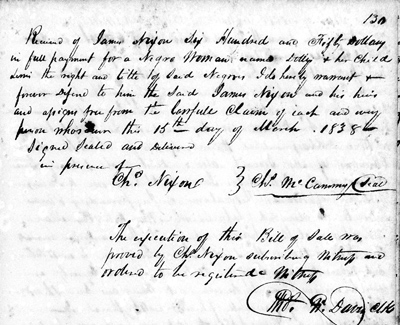 130
Received of James Nixon Six Hundred and Fifty Dollars
in full payment for a Negro Woman name Dolly & his Child
the right and title of said Negroes I do hereby warrant &
forever defend to him the said James Nixon and his heirs
and assigns free from the Lawfull Claim of each and every
person whosoever this 15th day of March 1838
Signed Sealed and Delivered
in presence of
Chs. Nixon } Chs. McCammy Seal
The execution of this Bill of Sale was
proved by Chs. Nixon subscribing Witness and
ordered to be registered Witness
W. Davis Clk